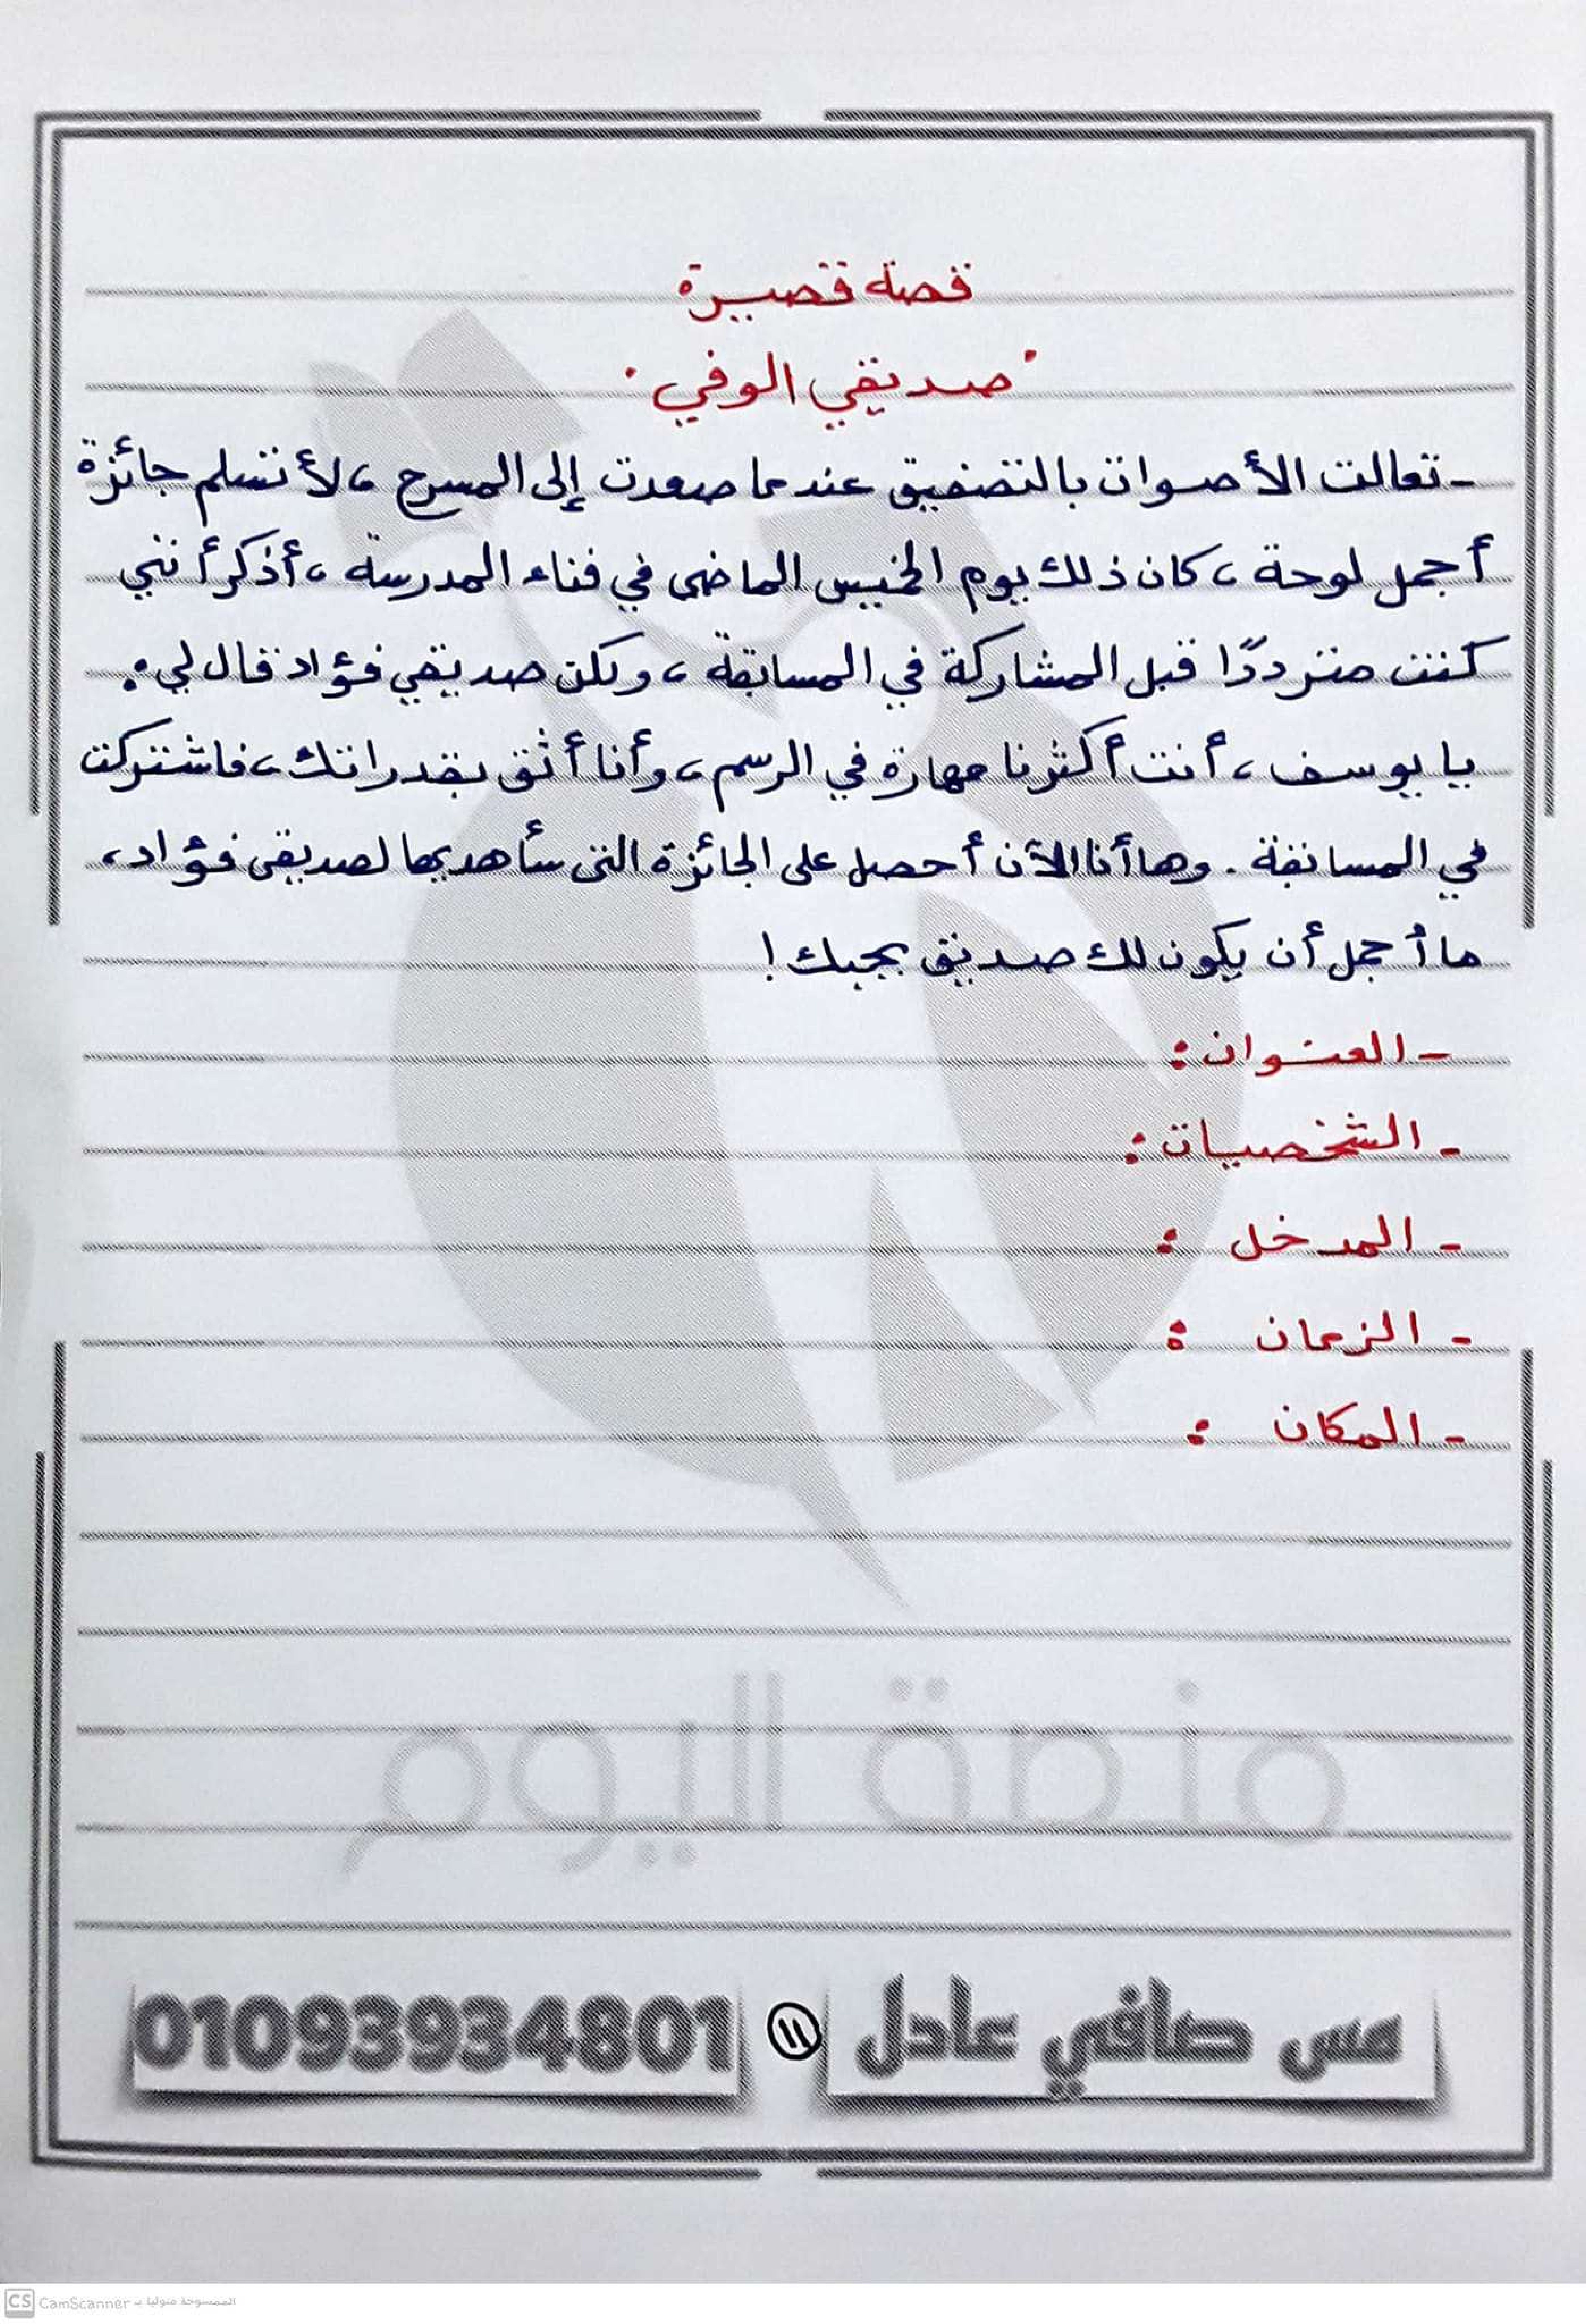 قصة قصيرة
"صديقي الوفي"
- تعالت الأصوات بالتصفيق عندما صعدت إلى المسرح ، لأتسلم جائزة
أجمل لوحة ، كان ذلك يوم الخميس الماضى في فناء المدرسة ، أذكر أنني
كنت مترددًا قبل المشاركة في المسابقة ، ولكن صديقي فؤاد قال لي :
يا يوسف ، أنت أكثرنا مهارة في الرسم ، وأنا أثق بقدراتك ، فاشتركت
في المسابقة . وها أنا الآن أحصل على الجائزة التى سأهديها لصديقى فؤاد ،
ما أجمل أن يكون لك صديق يحبك !
- العنوان :
- الشخصيات :
- المدخل :
- الزمان :
- المكان :
منصة اليوم
مس صافي عادل ١١ 01093934801
CS CamScanner الممسوحة ضوئيا بـ